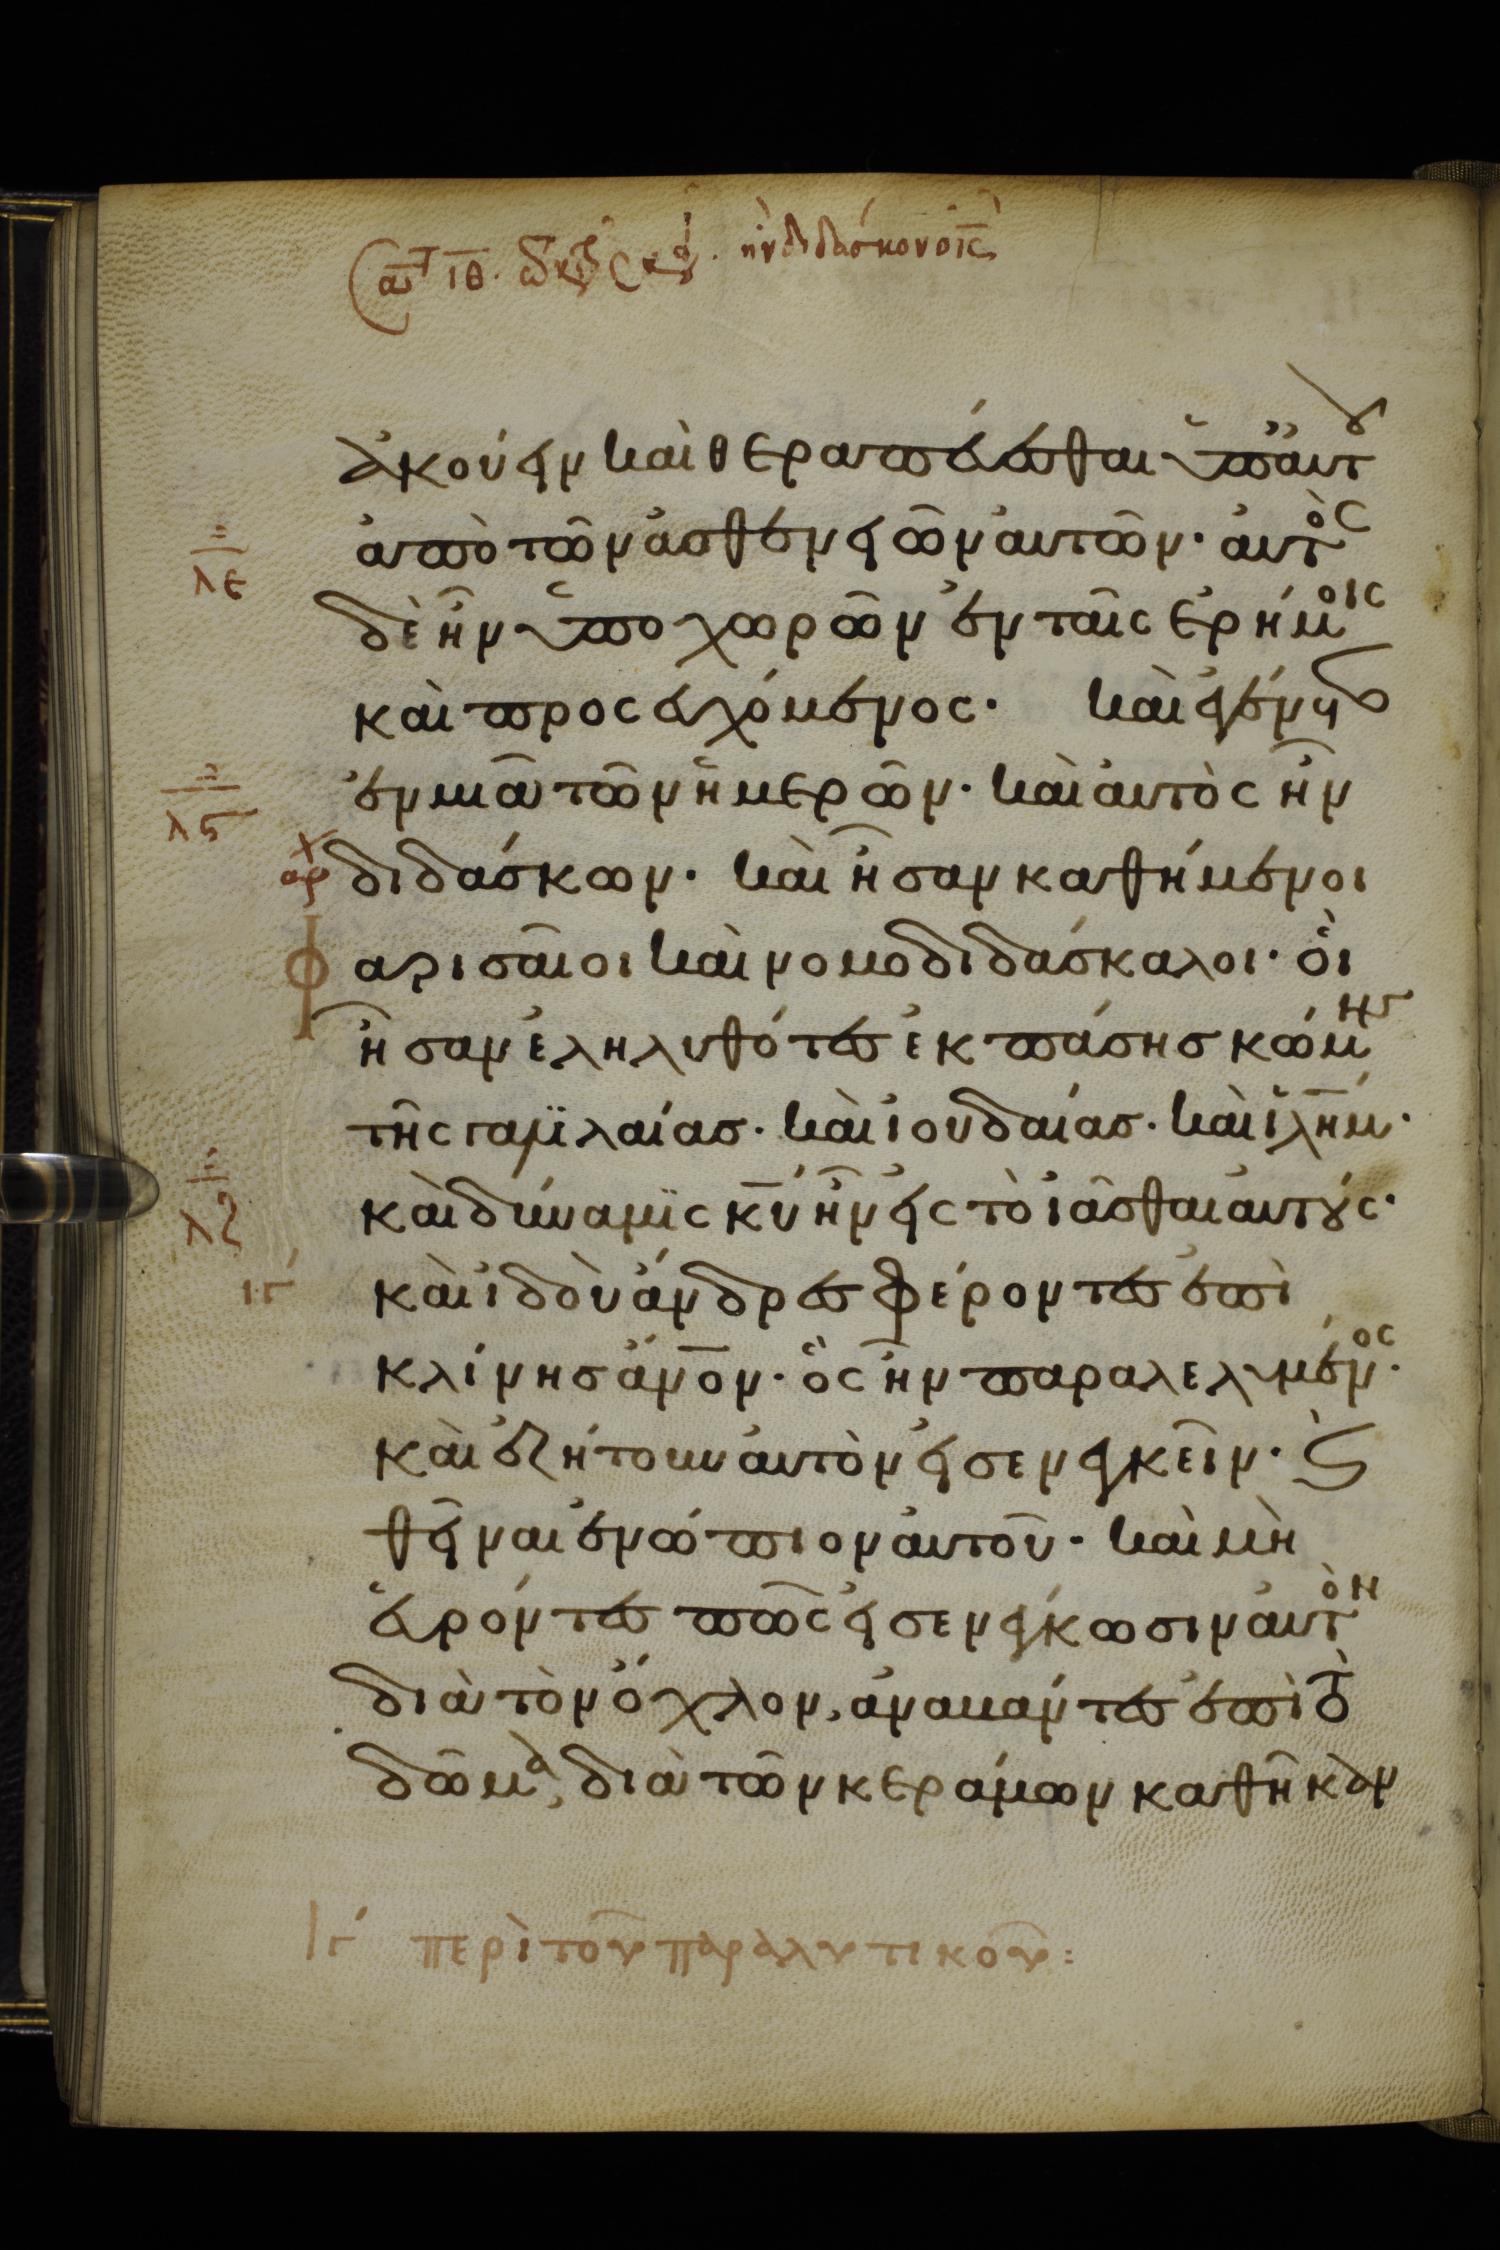 ἦν διδάσκων ὁ ις
ἀκούειν καὶ θεραπεύεσθαι ὑπ' αὐτου
λε
ἀπὸ τῶν ἀσθενειῶν αὐτῶν· αὐτὸς
δὲ ἦν ὑποχωρῶν ἐν ταῖς ἐρήμοις
καὶ προσευχόμενος· καὶ ἐγένετο
λϛ
ἐν μιᾶ τῶν ἡμερῶν· καὶ αὐτὸς ἦν
αρχ
διδάσκων· καὶ ἦσαν καθήμενοι
Φαρισαῖοι καὶ νομοδιδάσκαλοι· οἳ
ἦσαν ἐληλυθότες ἐκ πάσης κώμης
τῆς γαλϊλαίας· καὶ ἰουδαίας· καὶ ἰλῆμ·
λζ
καὶ δύναμϊς κυ ἦν εἰς τὸ ἰᾶσθαι αὐτούς·
ιγ
καὶ ἰδοὺ ἄνδρες φέροντες ἐπὶ
κλίνης ἄνον· ὃς ἦν παραλελυμένος·
καὶ ἐζήτουν αὐτὸν εἰσενεγκεῖν· καὶ
θεῖναι ἐνώπιον αὐτοῦ· καὶ μὴ
εὑρόντες πῶς εἰσενέγκωσιν αὐτὸν
διὰ τὸν ὄχλον, ἀναβάντες ἐπὶ τὸ
δῶμα, διὰ τῶν κεράμων καθῆκαν
ιγ περὶ τοῦ παραλυτικοῦ: